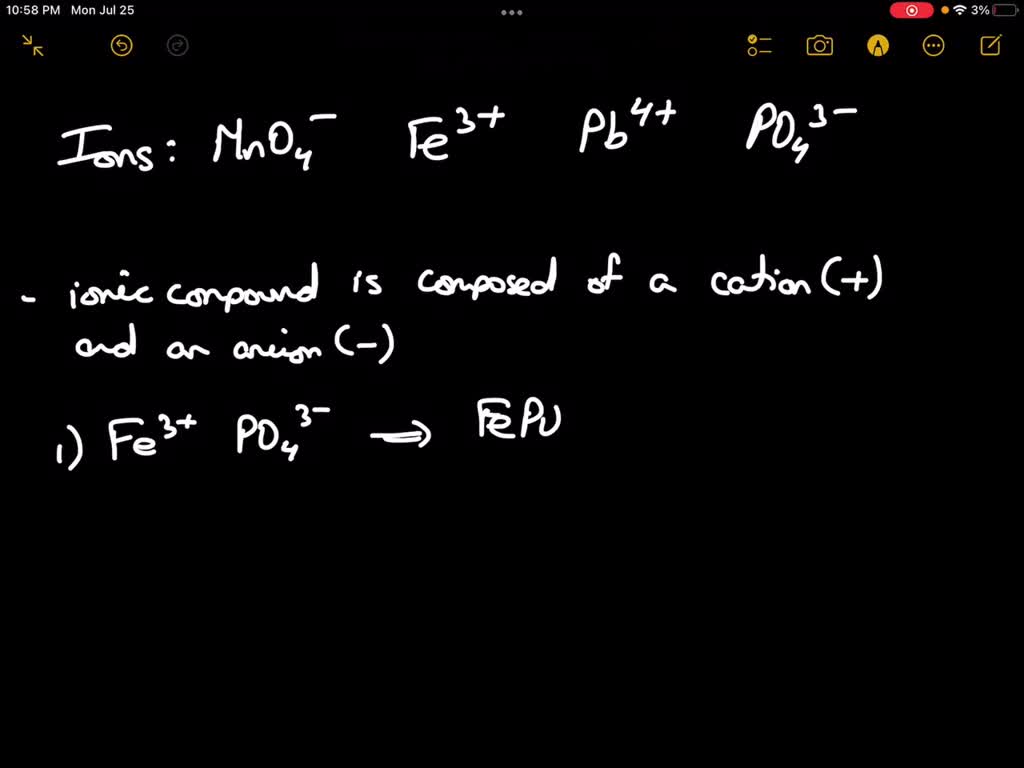 10:58 PM Mon Jul 25 3%
Ions: MnO₄⁻ Fe³⁺ Pb⁴⁺ PO₄³⁻
- ionic compound is composed of a cation (+)
and an anion (-)
1) Fe³⁺ PO₄³⁻ ⇒ FePO